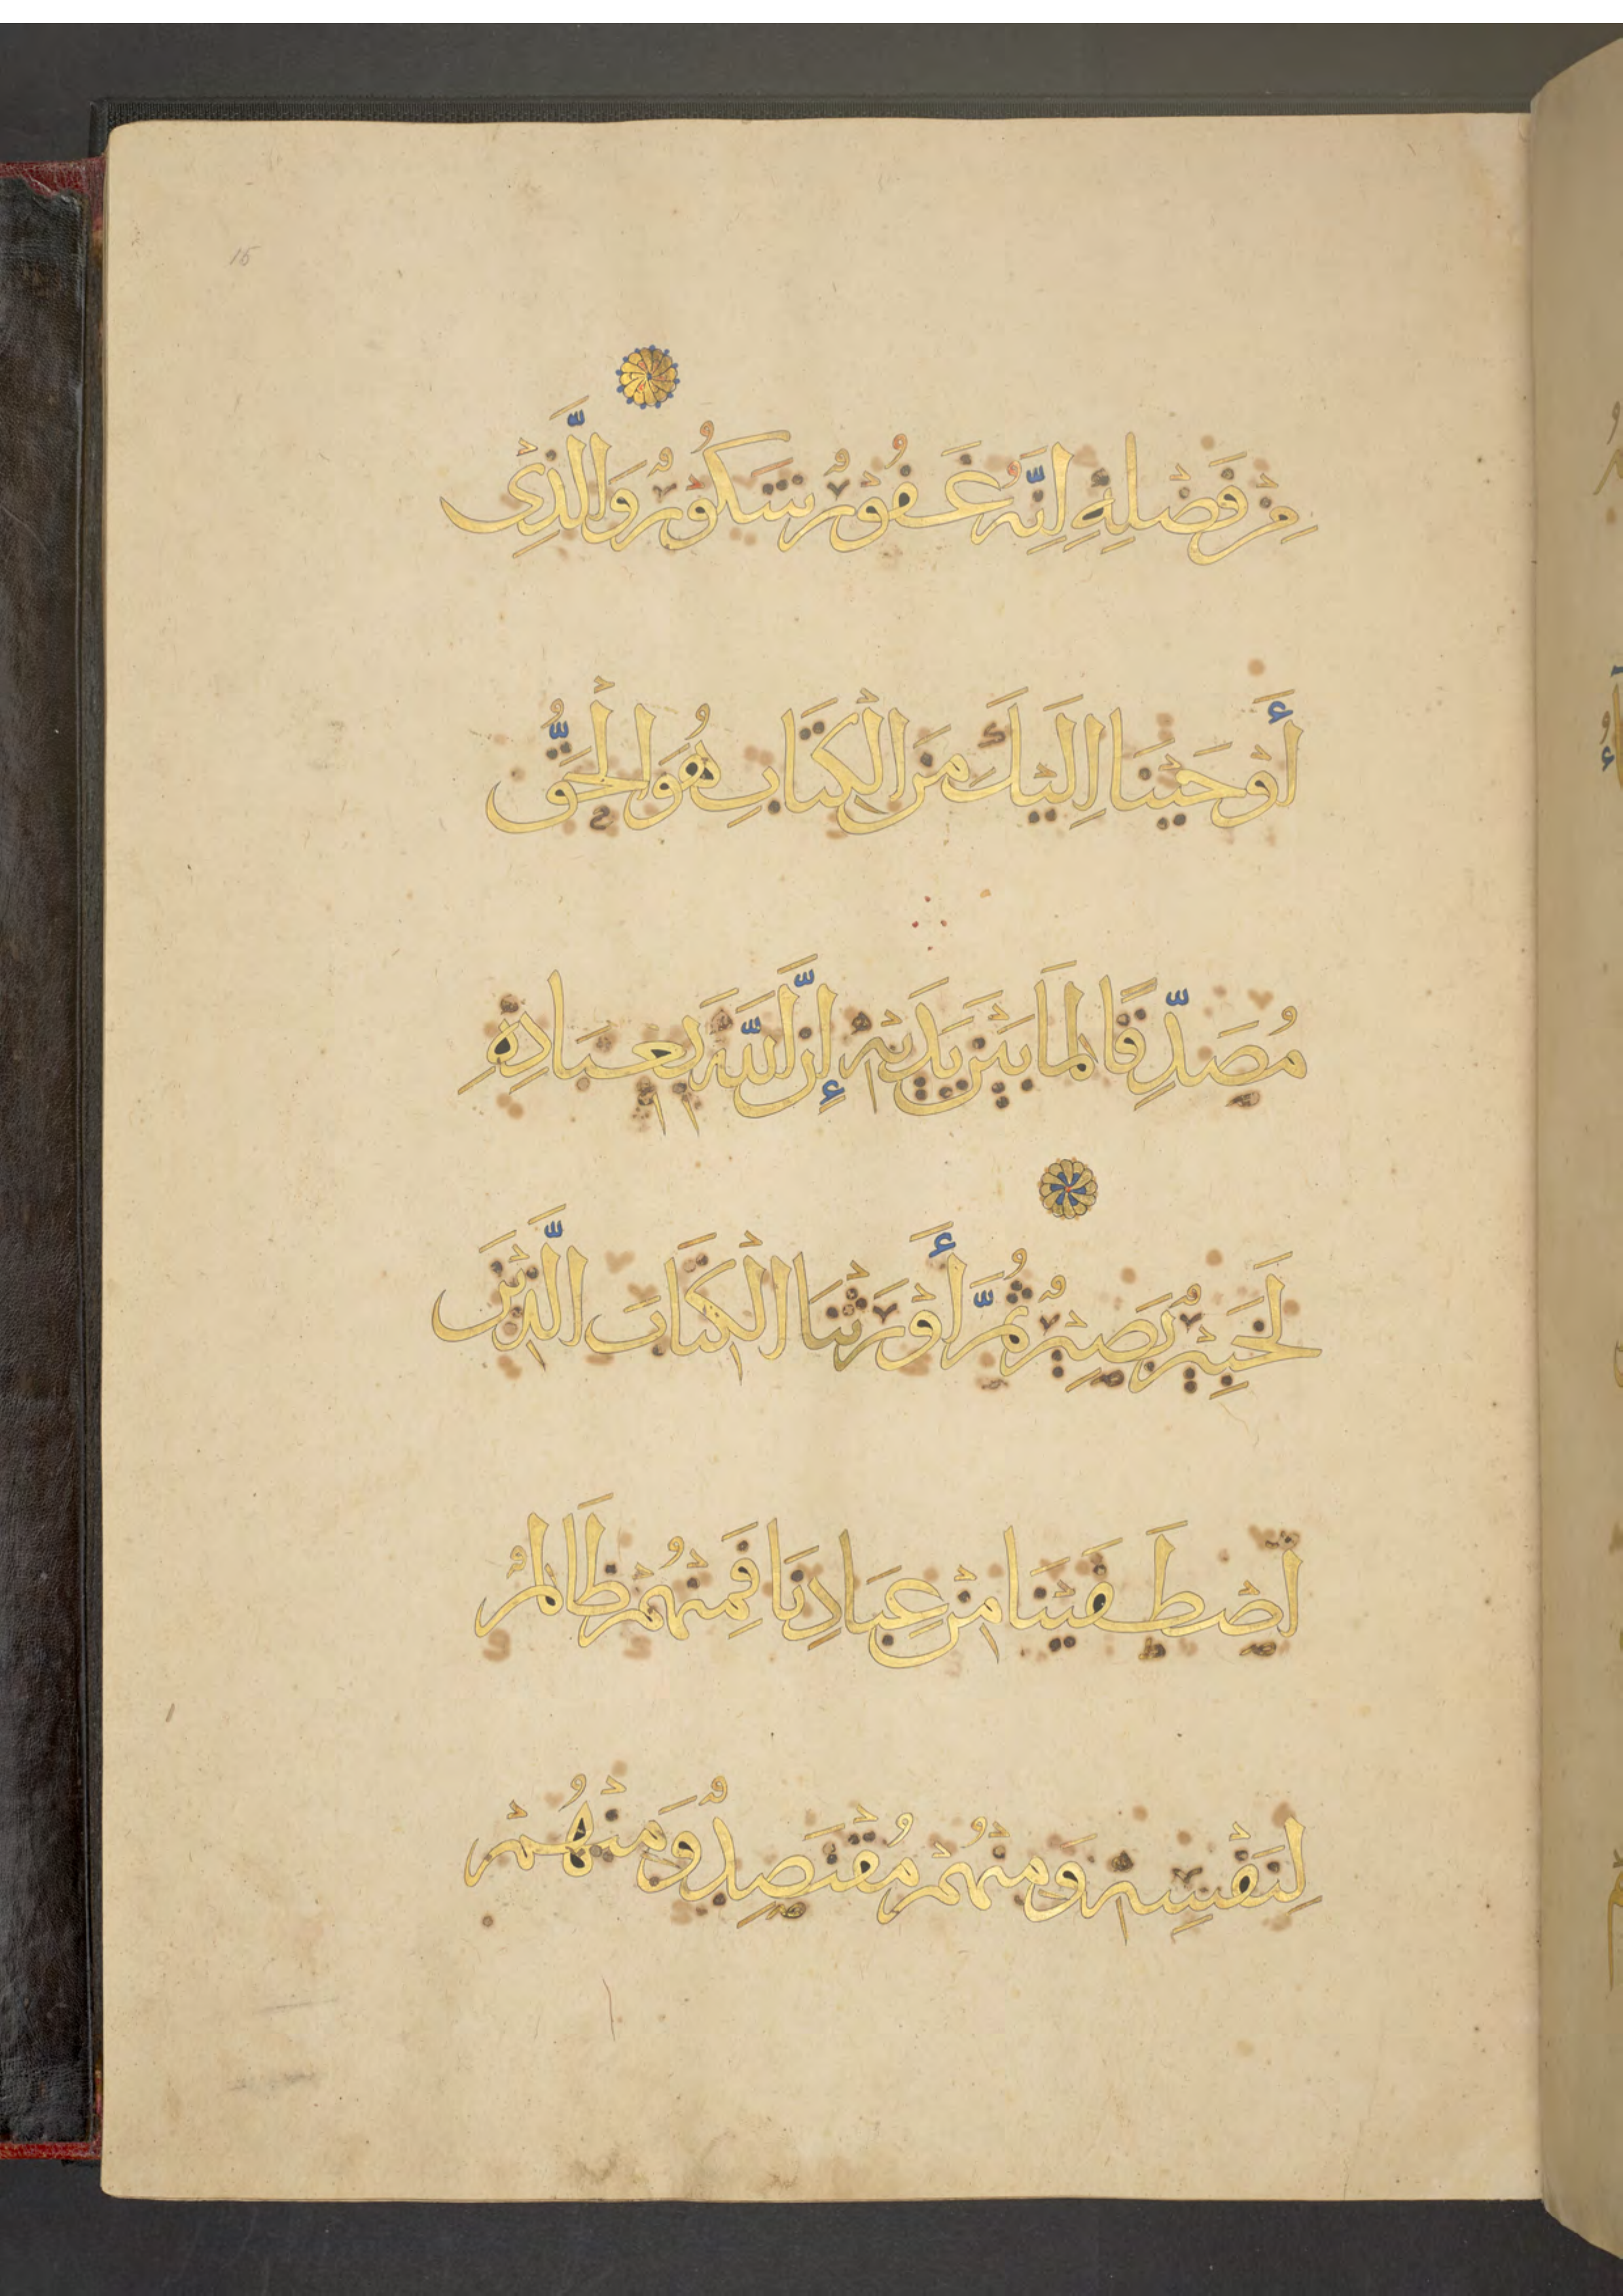 15
مِنْ فَضْلِهِ إِنَّهُ غَفُورٌ شَكُورٌ وَالَّذِى
أَوْحَيْنَا اِلَيْكَ مِنَ الْكِتَابِ هُوَ الْحَقُّ
مُصَدِّقًا لِمَا بَيْنَ يَدَيْهِ إِنَّ اللَّهَ بِعِبَادِهِ
لَخَبِيْرٌ بَصِيْرٌ ثُمَّ أَوْرَثْنَا الْكِتَابَ الَّذِيْنَ
اصْطَفَيْنَا مِنْ عِبَادِنَا فَمِنْهُمْ ظَالِمٌ
لِنَفْسِهِ وَمِنْهُمْ مُقْتَصِدٌ وَمِنْهُمْ